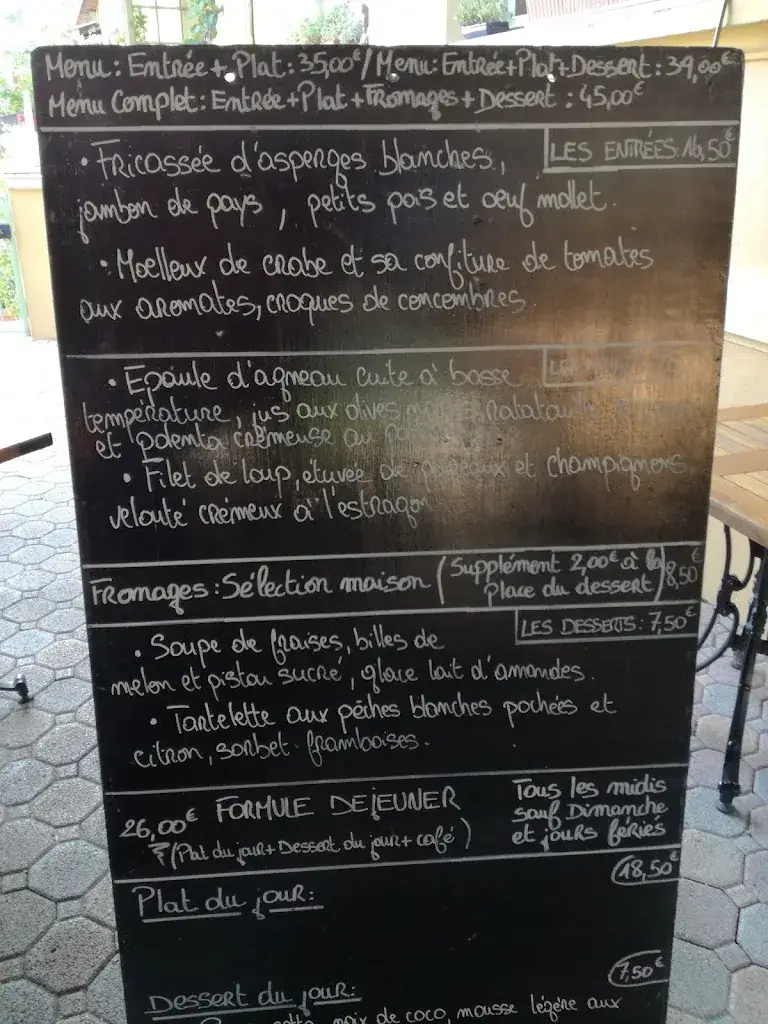 Menu: Entrée + Plat: 35,00€ / Menu: Entrée+Plat+Dessert: 39,00€
Menu Complet: Entrée+Plat+Fromages+Dessert: 45,00€
LES ENTRÉES: 16,50€
• Fricassée d'asperges blanches,
jambon de pays, petits pois et oeuf mollet.
• Moelleux de crabe et sa confiture de tomates
aux aromates, croques de concombres.
• Epaule d'agneau cuite à basse
température, jus aux olives
et polenta crémeuse au
• Filet de loup, étuvée de et champignons,
velouté crémeux à l'estragon
Fromages: Sélection maison (Supplément 2,00€ à la place du dessert) 8,50€
LES DESSERTS: 7,50€
• Soupe de fraises, billes de
melon et pistou sucré, glace lait d'amandes.
• Tartelette aux pêches blanches pochées et
citron, sorbet framboises.
26,00€ FORMULE DEJEUNER
(Plat du jour + Dessert du jour + café)
Tous les midis
sauf Dimanche
et jours fériés
18,50€
Plat du jour:
7,50€
Dessert du jour:
noix de coco, mousse légère aux